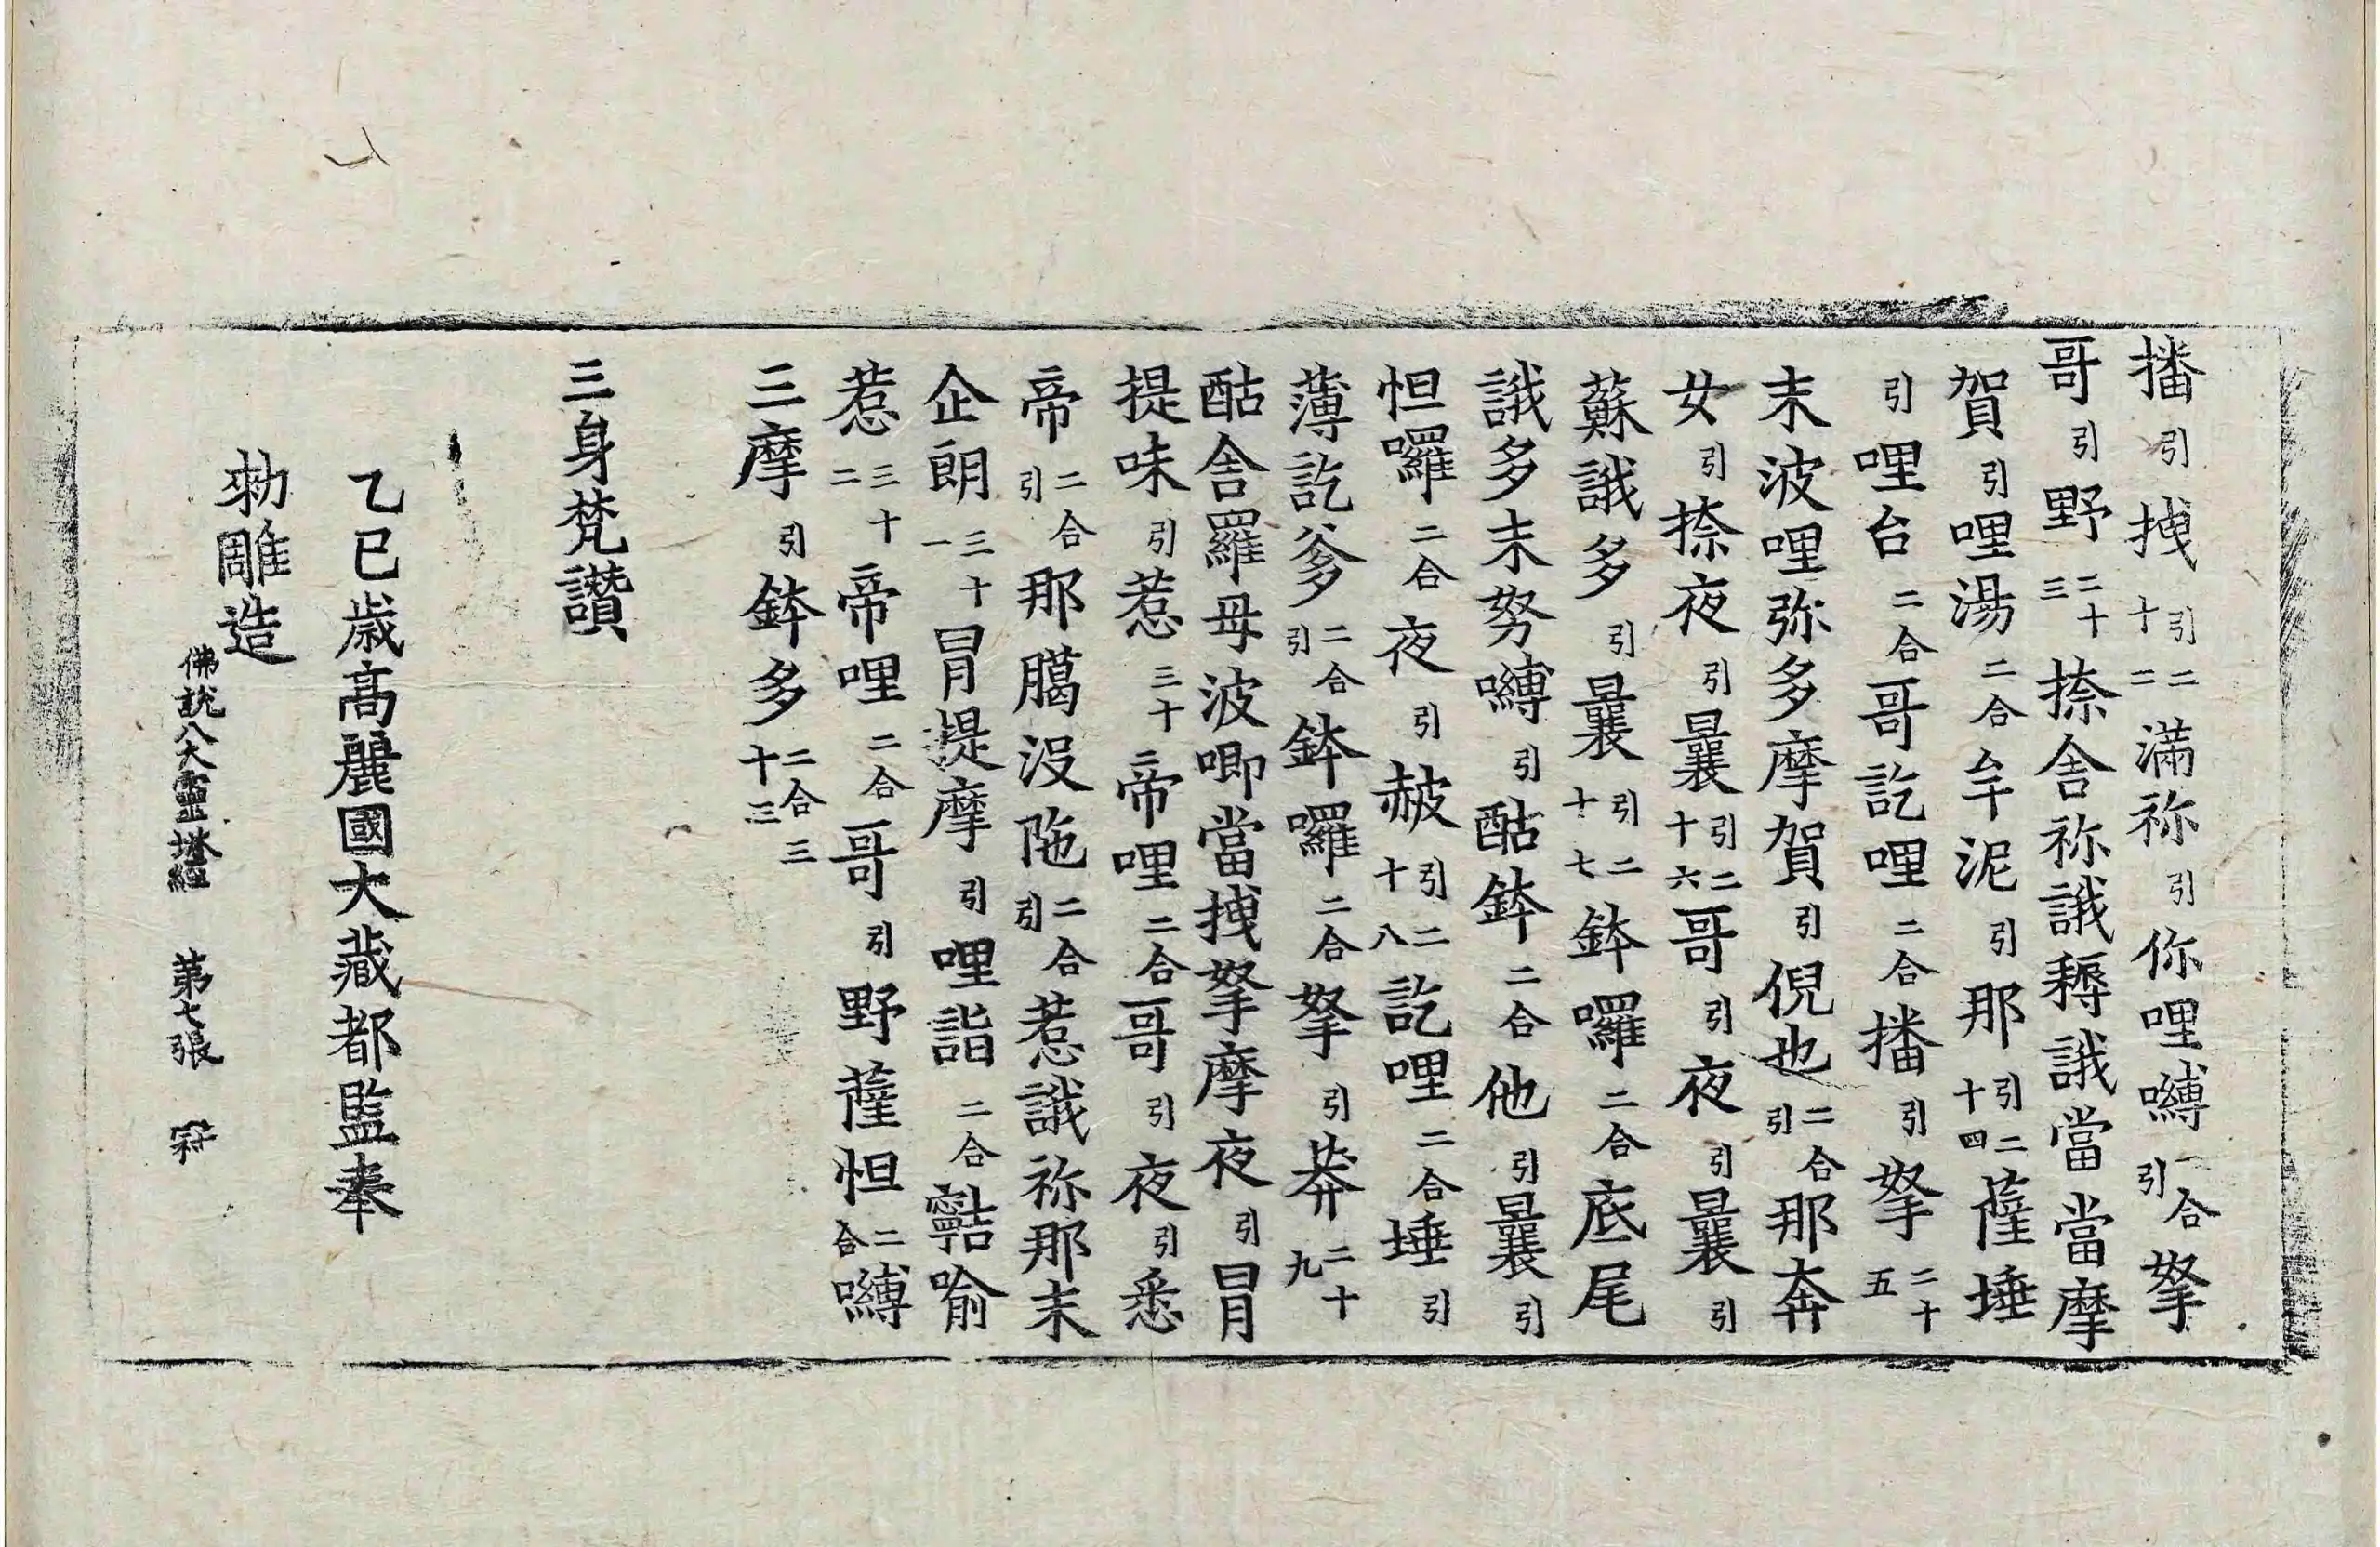 播引拽引二十二滿祢引你哩嚩二合引拏
哥引野二十三捺舍祢誐耨誐當當摩
賀引哩湯二合牟泥引那引二十四薩埵
引哩台二合哥訖哩二合播引拏二十五
末波哩弥多摩賀引倪也二合引那奔
女引捺夜引曩引二十六哥引夜引曩引
蘇誐多引曩引二十七鉢囉二合底尾
誐多末努嚩引酤鉢二合他引曩引
怛囉二合夜引赧引二十八訖哩二合埵引
薄訖爹二合引鉢囉二合拏引莽二十九
酤舍羅母波唧當拽拏摩夜引冐
提昧引惹三十帝哩二合哥引夜引悉
帝二合引那臈沒陁二合引惹誐祢那末
企朗三十一冐提摩引哩詣二合喻
惹三十二帝哩二合哥引野薩怛二合嚩
三摩引鉢多二合三十三
三身梵讚
乙巳歲高麗國大藏都監奉
勑雕造
佛說八大靈塔經 第七張 冠